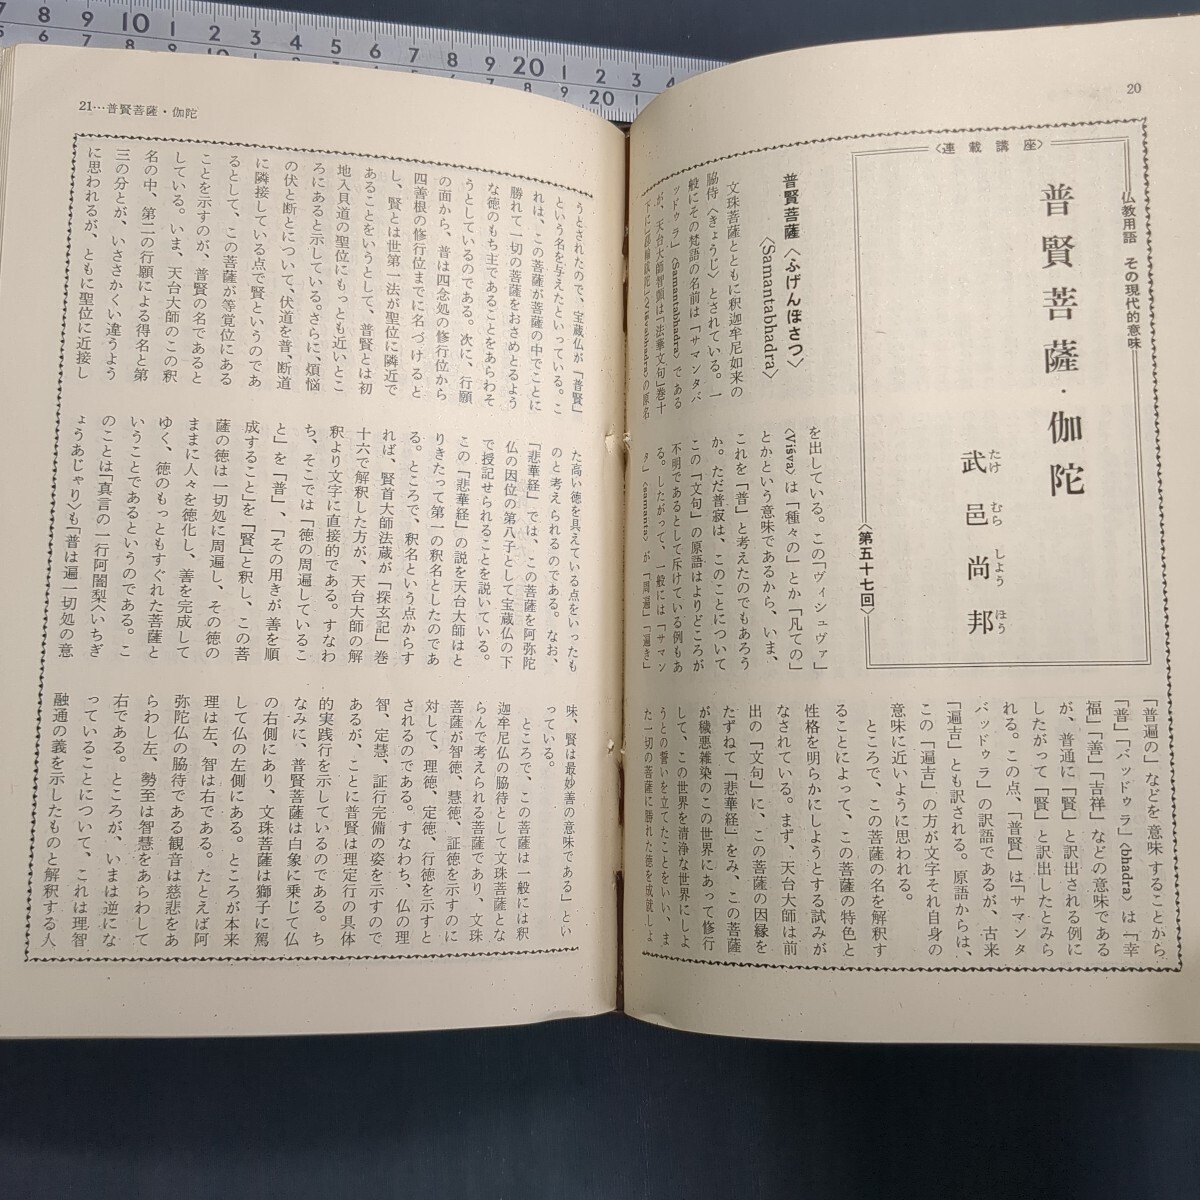 20
仏教用語 その現代的意味
〈連載講座〉
普賢菩薩・伽陀
武邑尚邦
たけ むら しよう ほう
〈第五十七回〉
普賢菩薩〈ふげんぼさつ〉
〈Samantabhadra〉
文珠菩薩とともに釈迦牟尼如来の
脇侍〈きょうじ〉とされている。一
般にその梵語の名前は「サマンタバ
ッドゥラ」〈Samantabhadra〉である
が、天台大師智顗は「法華文句」巻十
を出している。この「ヴィシュヴァ」
〈Viśva〉は「種々の」とか「凡ての」
とかという意味であるから、いま、
これを「普」と考えたのでもあろう
か。ただ普寂は、このことについて
この「文句」の原語はよりどころが
不明であるとして斥けている例もあ
る。したがって、一般には「サマン
タ」〈samanta〉が「周遍」「遍き」
「普遍の」などを意味することから
「普」「バッドゥラ」〈bhadra〉は「幸
福」「善」「吉祥」などの意味である
が、普通に「賢」と訳出される例に
したがって「賢」と訳出したとみら
れる。この点、「普賢」は「サマンタ
バッドゥラ」の訳語であるが、古来
「遍吉」とも訳される。原語からは、
この「遍吉」の方が文字それ自身の
意味に近いように思われる。
ところで、この菩薩の名を解釈す
ることによって、この菩薩の特色と
性格を明らかにしようとする試みが
なされている。まず、天台大師は前
出の「文句」に、この菩薩の因縁を
たずねて「悲華経」をみ、この菩薩
が穢悪雑染のこの世界にあって修行
して、この世界を清浄な世界にしよ
うとの誓いを立てたことをいい、ま
た一切の菩薩に勝れた徳を成就しよ
21…普賢菩薩・伽陀
うとされたので、宝蔵仏が「普賢」
という名を与えたといっている。こ
れは、この菩薩が菩薩の中でことに
勝れて一切の菩薩をおさめとるよう
な徳のもち主であることをあらわそ
うとしているのである。次に、行願
の面から、普は四念処の修行位から
四善根の修行位までに名づけると
し、賢とは世第一法が聖位に隣近で
あることをいうとして、普賢とは初
地入見道の聖位にもっとも近いとこ
ろにあると示している。さらに、煩悩
の伏と断とについて、伏道を普、断道
に隣接している点で賢というのであ
るとして、この菩薩が等覚位にある
ことを示すのが、普賢の名であると
している。いま、天台大師のこの釈
名の中、第二の行願による得名と第
三の分とが、いささかくい違うよう
に思われるが、ともに聖位に近接し
た高い徳を具えている点をいったも
のと考えられるのである。なお、
「悲華経」では、この菩薩を阿弥陀
仏の因位の第八子として宝蔵仏の下
で授記せられることを説いている。
この「悲華経」の説を天台大師はと
りきたって第一の釈名としたのであ
る。ところで、釈名という点からす
れば、賢首大師法蔵が「探玄記」巻
十六で解釈した方が、天台大師の解
釈より文字に直接的である。すなわ
ち、そこでは「徳の周遍している
と」を「普」、「その用きが善を順
成すること」を「賢」と釈し、この菩
薩の徳は一切処に周遍し、その徳の
ままに人々を徳化し、善を完成して
ゆく、徳のもっともすぐれた菩薩と
いうことであるというのである。こ
のことは「真言の一行阿闍梨〈いちぎ
ょうあじゃり〉も「普は遍一切処の意
味、賢は最妙善の意味である」とい
っている。
ところで、この菩薩は一般には釈
迦牟尼仏の脇待として文珠菩薩とな
らんで考えられる菩薩であり、文珠
菩薩が智徳、慧徳、証徳を示すのに
対して、理徳、定徳、行徳を示すと
されるのである。すなわち、仏の理
智、定慧、証行完備の姿を示すので
あるが、ことに普賢は理定行の具体
的実践行を示しているのである。ち
なみに、普賢菩薩は白象に乗じて仏
の右側にあり、文珠菩薩は獅子に駕
して仏の左側にある。ところが本来
理は左、智は右である。たとえば阿
弥陀仏の脇待である観音は慈悲をあ
らわし左、勢至は智慧をあらわして
右である。ところが、いまは逆にな
っていることについて、これは理智
融通の義を示したものと解釈する人